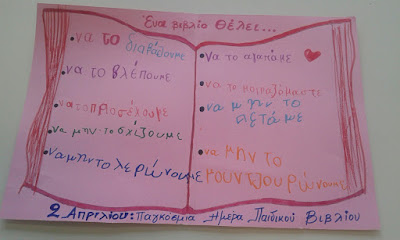 Ένα βιβλίο θέλει...
•να το διαβάθουμε
•να το βλέπουμε
•να το προσέχουμε
•να μην το σχίζουμε
•να μην το λερώνουμε
•να το αγαπάμε
•να το μοιραζόμαστε
•να μην το
πετάμε
•να μην το
μουντζουρώνουμε
2 Απριλίου: Παγκόσμια Ημέρα Παιδικού Βιβλίου